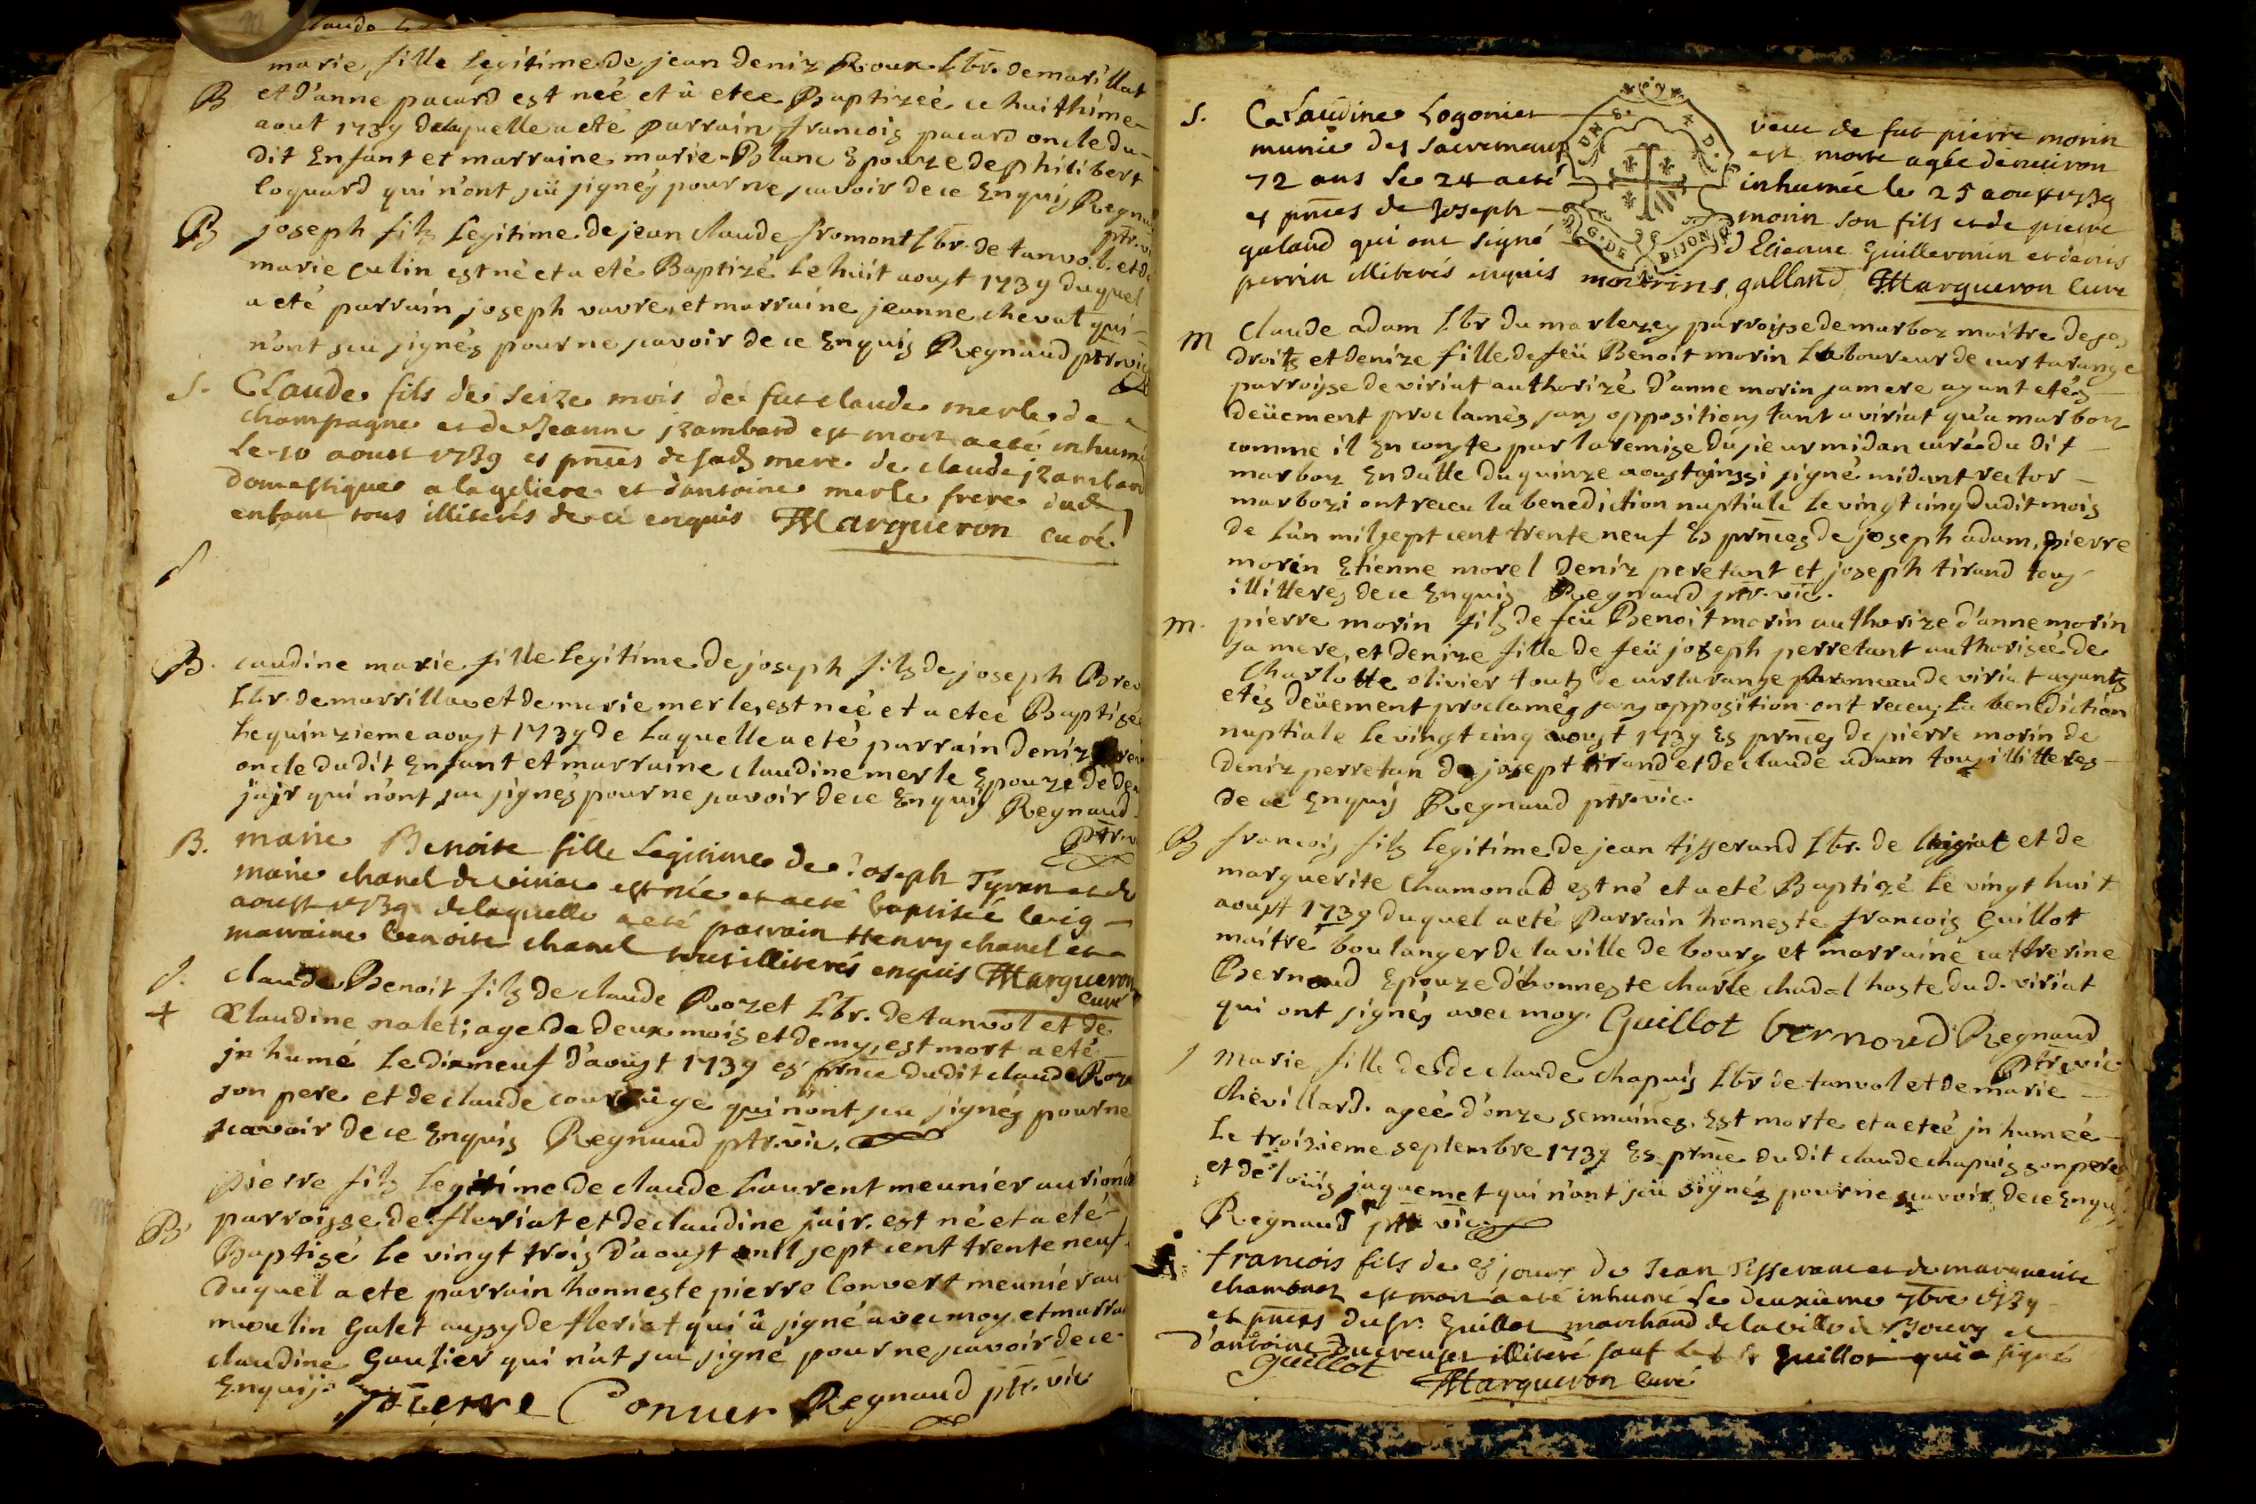 marie fille Legitime de jean deniz Roux Lbr. de marillat
B et d'anne pacard est neé et à eteé Baptizeé ce huithime
aout 1739 de laquelle a eté parrain francois pacard oncle du
dit Enfant et marraine marie Blanc Epouze de philibert
loquard qui n'ont sçu signés pour ne scavoir de ce Enquis Regnaud
ptr. vic
B joseph filz Legitime de jean claude fromont Lbr. de tanvol et de
marie culin est né et a eté Baptizé Le huit aoust 1739 duquel
a eté parrain joseph vavre et marraine jeanne chevat qui
n'ont sçu signés pour ne scavoir de ce Enquis Regnaud ptr. vic
S. Claude fils de seize mois de fut claude merle de
champagne et de Jeanne jzambard est mort a eté inhumé
Le 10 aoust 1739 es pnces de sad. mere de claude jzambard
domestique a la geliere et d'antoine merle frere dud.
enfant tous illiterés de ce enquis Margueron curé
S
B. caudine marie fille Legitime de joseph filz de joseph
Lbr. de marrillat et de marie merle, est neé et a eteé Baptiseé
Le quinzieme aoust 1739 de Laquelle a eté parrain deniz
oncle dudit Enfant et marraine claudine merle Epouze de
jair qui n'ont sçu signés pour ne scavoir de ce Enquis Regnaud
ptr. v
B. marie Benoite fille Legitime de Joseph Tyran et de
marie chanel de viriat est née et a eté baptiseé le
aoust 1739 de laquelle a eté parrain Henry chanel et
marraine benoite chanel tous illiterés enquis Margueron
curé
S. claude Benoit filz de claude Rozet Lbr. de tanvol et de
+ Claudine nalet; age de deux mois et demy, est mort a eté
jnhumé Le dixneuf d'aoust 1739 es prnce dudit claude Roze
son pere et de claude qui n'ont sçu signés pour ne
scavoir de ce Enquis Regnaud ptr. vic.
pierre filz Legitime de claude Laurent meunier au
B parroisse de fleriat et de claudine jair. est né et a eté
Baptisé Le vingt trois d'aoust mil sept cent trente neuf
duquel a ete parrain honneste pierre Convert meunier au
moulin Galet aussy de fleriat qui a signé avec moy et marrai
claudine Gautier qui n'at sçu signé pour ne scavoir de ce
Enquis. pierre Conver Regnaud ptr. vic
S. Claudine Logonier veuve de fut pierre morin
munie des sacremens est morte agée denviron
72 ans Le 24 a eté inhumée le 25 aoust 1739
es pnces de Joseph morin son fils et de pierre
galand qui ont signé d'Etienne Guillermin et denis
perrin illiterés enquis morins, galland Margueron Curé
G. DE DIJON
m Claude adam Lbr du marlezey parroisse de marboz maitre de ses
droits et denize fille de feü Benoit morin Laboureur de curtarange
parroisse de viriat authorizé d'anne morin sa mere ayant etés
deüement proclamés sans oppositions tant a viriat qu'a marboz
comme il En conste par la remise du sieur midan curé du dit
marboz En datte du quinze aoust ainssi signé midant rector
marbozi ont receu la benediction nuptiale Le vingt cinq dudit mois
de L'an mil sept cent trente neuf Es prnces de joseph adam, pierre
morin Etienne morel deniz peretant et joseph tirand tous
illitteres de ce Enquis Regnaud ptr. vic.
m. pierre morin filz de feü Benoit morin authorize d'anne morin
sa mere, et denize fille de feü joseph perretant authoriseé de
Charlotte olivier touts de curtarange de viriat ayants
etés deüement proclamés sans opposition ont receu La benediction
nuptiale Le vingt cinq aoust 1739 Es prnces de pierre morin de
deniz perretan de josept tirand et de claude adam tous illitteres
de ce Enquis Regnaud ptr. vic.
B francois filz Legitime de jean tisserand Lbr. de et de
marguerite Chamonad est né et a eté Baptizé Le vingt huit
aoust 1739 duquel a eté Parrain honneste francois Guillot
maitre boulanger de la ville de bourg et marraine catherine
Bernoud Epouze d'honneste charle chadel hoste dud. viriat
qui ont signés avec moy. Guillot bernoud Regnaud
ptr. vic
S marie fille de de claude chapuis Lbr de tanvol et de marie
Chevillard. ageé d'onze semaines. Est morte et a eteé jnhumeé
Le troizieme septembre 1739 Es prnce du dit claude chapuis son pere
et de loüis jaquemet qui n'ont sçu signés pour ne scavoir, de ce Enquis
Regnaud ptr vic.
francois fils de 8 jours de Jean Tisserand et de marguerite
chamonet est mort a eté inhumé Le deuxieme 7bre 1739
es pnces du sr. Guillot marchand de la ville de Bourg et
d'antoine illiteré sauf Led. sr Guillot qui a signé
Guillot Margueron Curé